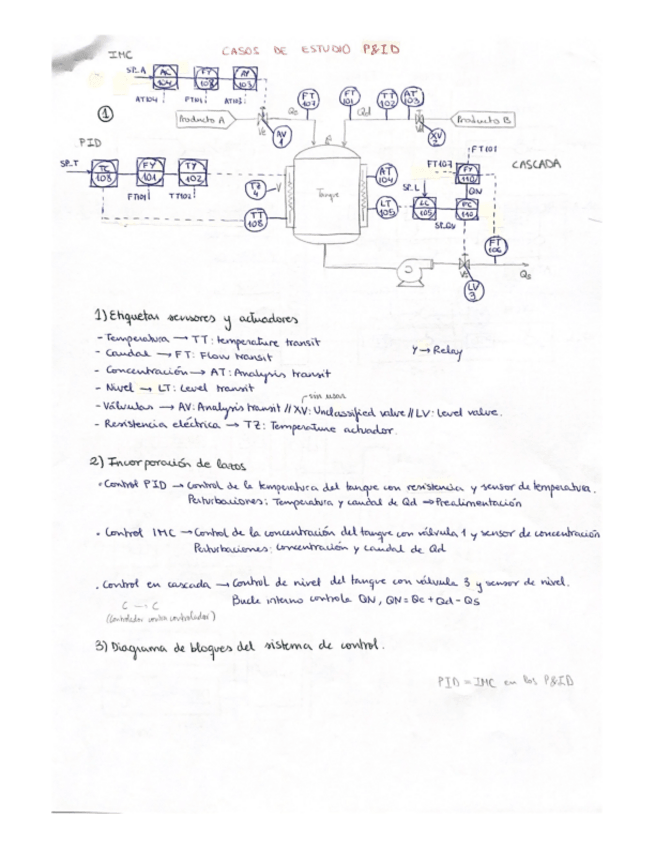 IMC
CASOS DE ESTUDIO P&ID
SP_A
AC 104
FY 102
AY 103
AT104
FT101
AT103
FT 107
FT 101
TT 102
AT 103
Qc
Qd
①
Producto A
Producto B
Vc
AV 1
Vd
XV 2
PID
SP_T
TC 108
FY 101
TY 102
FT101
TT102
TZ 4
V
TT 108
Tanque
AT 104
LT 105
CASCADA
FT101
FT107
FY 110
QN
SP_L
LC 105
FC 110
SP_QN
FT 106
Vs
LV 3
Qs
1) Etiquetar sensores y actuadores
- Temperatura → TT: temperature transit
- Caudal → FT: Flow transit
Y → Relay
- Concentración → AT: Analysis transit
- Nivel → LT: Level transit
sin usar
- Válvulas → AV: Analysis transit // XV: Unclassified valve // LV: Level valve.
- Resistencia eléctrica → TZ: Temperature actuador.
2) Incorporación de lazos
· Control PID → Control de la temperatura del tanque con resistencia y sensor de temperatura.
Perturbaciones: Temperatura y caudal de Qd → Prealimentación
· Control IMC → Control de la concentración del tanque con válvula 1 y sensor de concentración
Perturbaciones: concentración y caudal de Qd
· Control en cascada → Control de nivel del tanque con válvula 3 y sensor de nivel.
Bucle interno controla QN, QN = Qc + Qd - Qs
C --- C
(Controlador contra controlador)
3) Diagrama de bloques del sistema de control.
PID = IMC en los P&ID